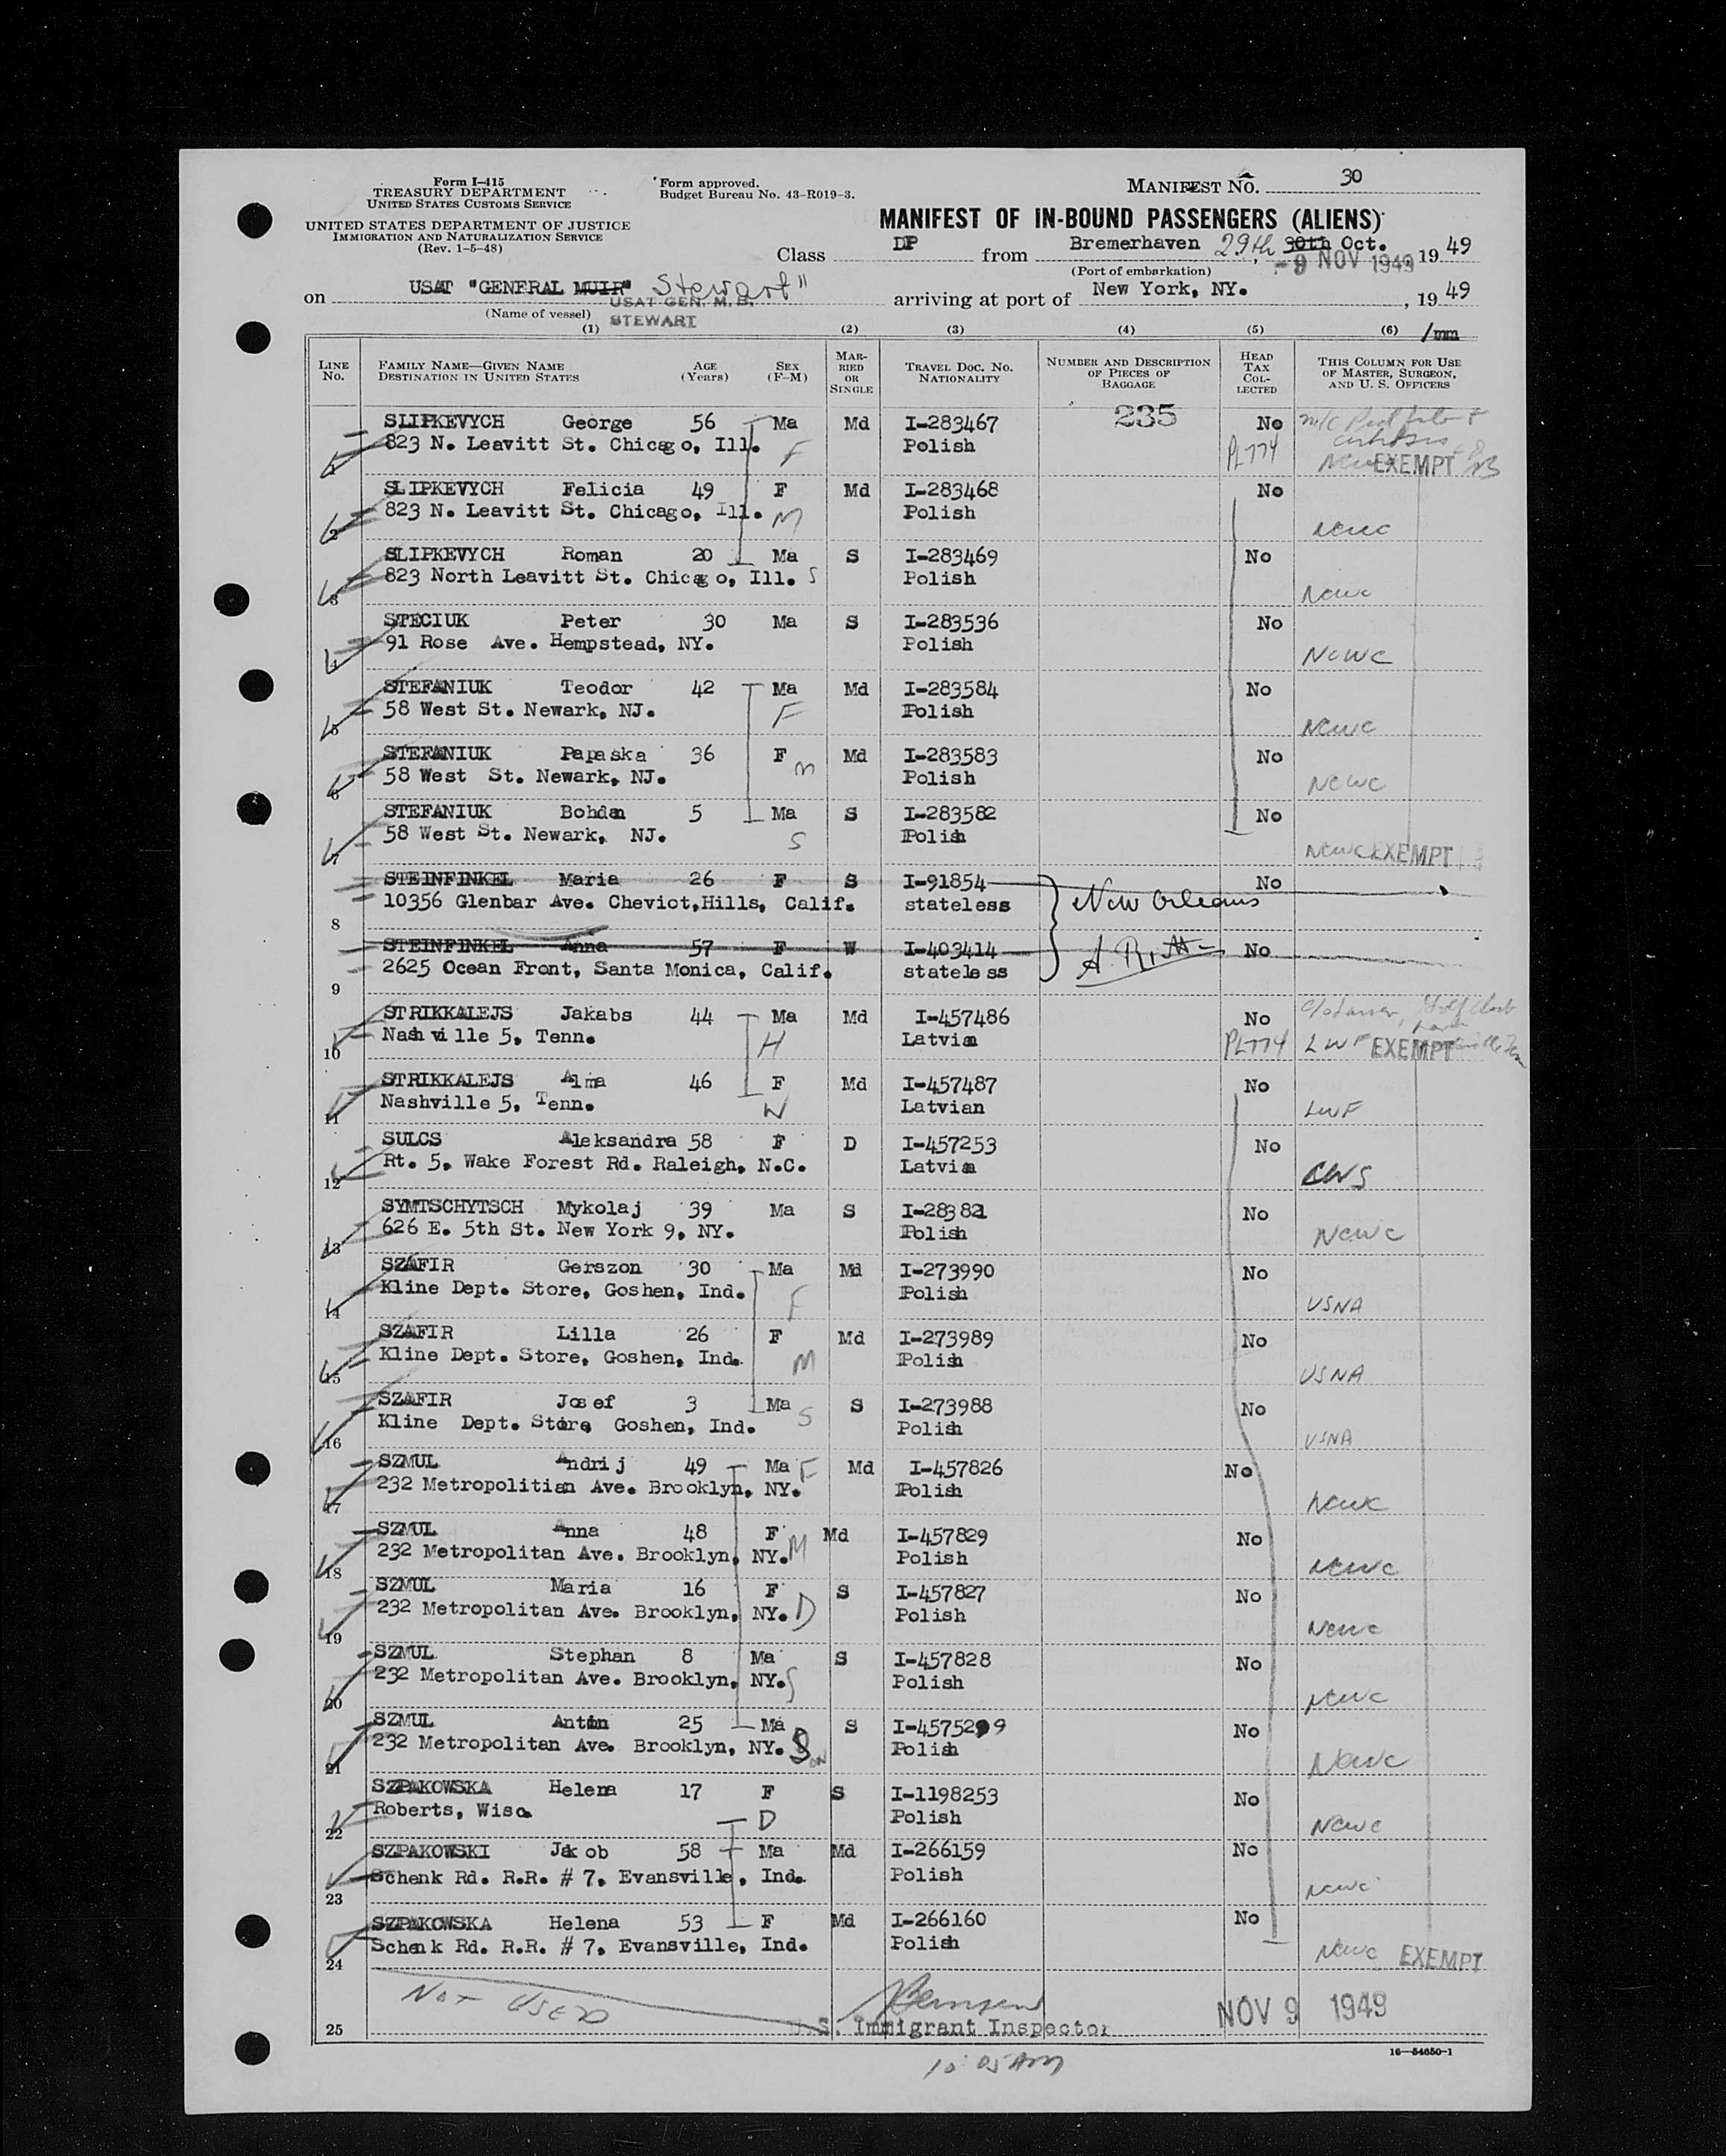 Form I-415
TREASURY DEPARTMENT
UNITED STATES CUSTOMS SERVICE
UNITED STATES DEPARTMENT OF JUSTICE
IMMIGRATION AND NATURALIZATION SERVICE
(Rev. 1-5-48)
Form approved.
Budget Bureau No. 43-R019-3.
MANIFEST NO. 30
MANIFEST OF IN-BOUND PASSENGERS (ALIENS)
Class DP from Bremerhaven 29th 30th Oct., 1949
(Port of embarkation)
-9 NOV 1949
on USAT "GENERAL MUIR" Stewart" arriving at port of New York, NY., 1949
USAT GEN. M. B. STEWART
(Name of vessel)
(1) (2) (3) (4) (5) (6) /mm
LINE No. FAMILY NAME—GIVEN NAME DESTINATION IN UNITED STATES AGE (Years) SEX (F-M) MARRIED OR SINGLE TRAVEL DOC. NO. NATIONALITY NUMBER AND DESCRIPTION OF PIECES OF BAGGAGE HEAD TAX COLLECTED THIS COLUMN FOR USE OF MASTER, SURGEON, AND U. S. OFFICERS
SLIPKEVYCH George 56 Ma Md I-283467 235 No m/c
1 823 N. Leavitt St. Chicago, Ill. F Polish PL774 NCWC EXEMPT
SLIPKEVYCH Felicia 49 F Md I-283468 No
2 823 N. Leavitt St. Chicago, Ill. M Polish NCWC
SLIPKEVYCH Roman 20 Ma S I-283469 No
3 823 North Leavitt St. Chicago, Ill. S Polish NCWC
STECIUK Peter 30 Ma S I-283536 No
4 91 Rose Ave. Hempstead, NY. Polish NCWC
STEFANIUK Teodor 42 Ma Md I-283584 No
5 58 West St. Newark, NJ. F Polish NCWC
STEFANIUK Papaska 36 F Md I-283583 No
6 58 West St. Newark, NJ. M Polish NCWC
STEFANIUK Bohdan 5 Ma S I-283582 No
7 58 West St. Newark, NJ. S Polish NCWC EXEMPT
STEINFINKEL Maria 26 F S I-91854 No
8 10356 Glenbar Ave. Cheviot,Hills, Calif. stateless New Orleans
STEINFINKEL Anna 57 F W I-403414 No
9 2625 Ocean Front, Santa Monica, Calif. stateless
STRIKKALEJS Jakabs 44 Ma Md I-457486 No
10 Nashville 5, Tenn. H Latvian PL774 LWF EXEMPT
STRIKKALEJS Alma 46 F Md I-457487 No
11 Nashville 5, Tenn. W Latvian LWF
SULCS Aleksandra 58 F D I-457253 No
12 Rt. 5, Wake Forest Rd. Raleigh, N.C. Latvian CWS
SYMTSCHYTSCH Mykolaj 39 Ma S I-28382 No
13 626 E. 5th St. New York 9, NY. Polish NCWC
SZAFIR Gerszon 30 Ma Md I-273990 No
14 Kline Dept. Store, Goshen, Ind. F Polish USNA
SZAFIR Lilla 26 F Md I-273989 No
15 Kline Dept. Store, Goshen, Ind. M Polish USNA
SZAFIR Josef 3 Ma S I-273988 No
16 Kline Dept. Store, Goshen, Ind. S Polish USNA
SZMUL Andrij 49 Ma F Md I-457826 No
17 232 Metropolitian Ave. Brooklyn, NY. Polish NCWC
SZMUL Anna 48 F Md I-457829 No
18 232 Metropolitan Ave. Brooklyn, NY. M Polish NCWC
SZMUL Maria 16 F S I-457827 No
19 232 Metropolitan Ave. Brooklyn, NY. D Polish NCWC
SZMUL Stephan 8 Ma S I-457828 No
20 232 Metropolitan Ave. Brooklyn, NY. S Polish NCWC
SZMUL Anton 25 Ma S I-4575299 No
21 232 Metropolitan Ave. Brooklyn, NY. Son Polish NCWC
SZPAKOWSKA Helena 17 F S I-1198253 No
22 Roberts, Wisc. D Polish NCWC
SZPAKOWSKI Jakob 58 Ma Md I-266159 No
23 Schenk Rd. R.R. # 7, Evansville, Ind. Polish NCWC
SZPAKOWSKA Helena 53 F Md I-266160 No
24 Schenk Rd. R.R. # 7, Evansville, Ind. Polish NCWC EXEMPT
NOT USED
25 U.S. Immigrant Inspector NOV 9 1949
16—54650-1
10:05 AM